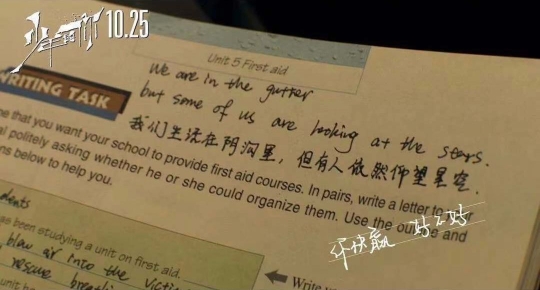 少年的你 10.25
Unit 5 First aid
We are in the gutter
WRITING TASK
but some of us are looking at the stars.
我们生活在阴沟里，但有人依然仰望星空.
ne that you want your school to provide first aid courses. In pairs, write a letter to
al politely asking whether he or she could organize them. Use the outline and
ns below to help you.
dents
as been studying a unit on first aid.
blow air into the victi
rescue breathi
unit ba
Write